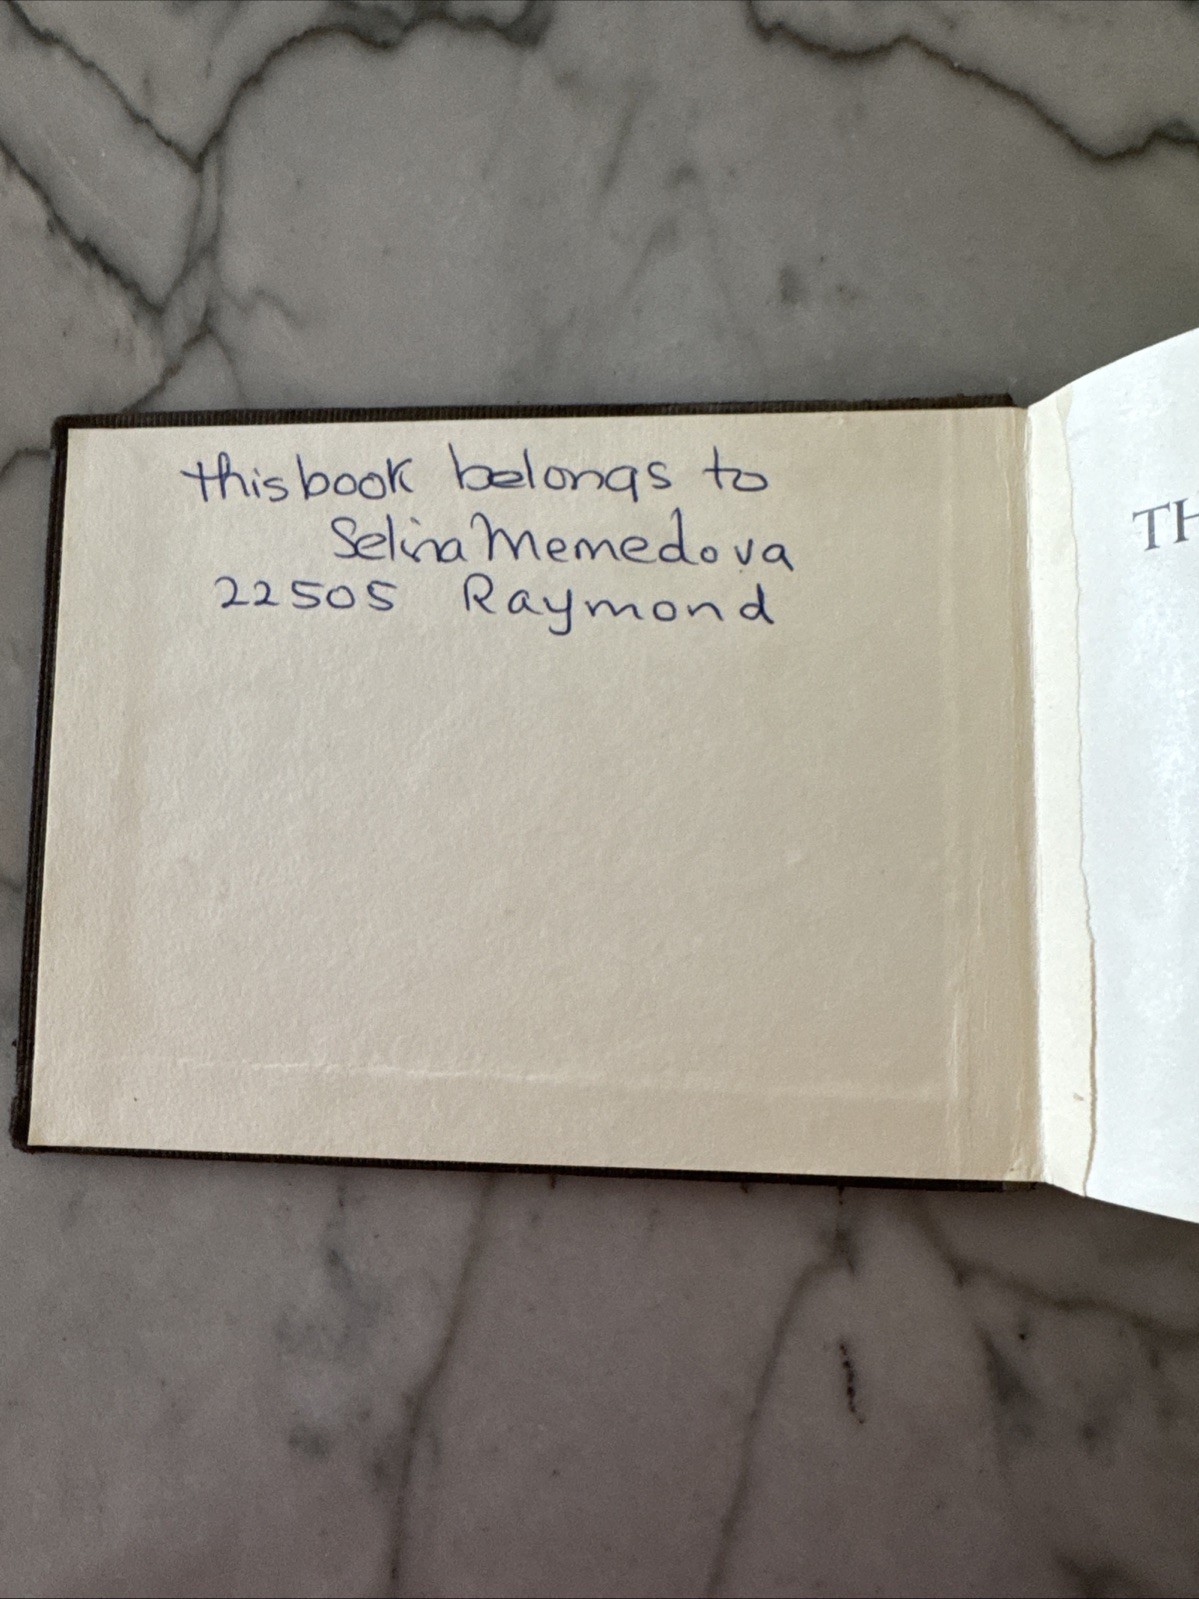 this book belongs to
Selina Memedova
22505 Raymond
TH